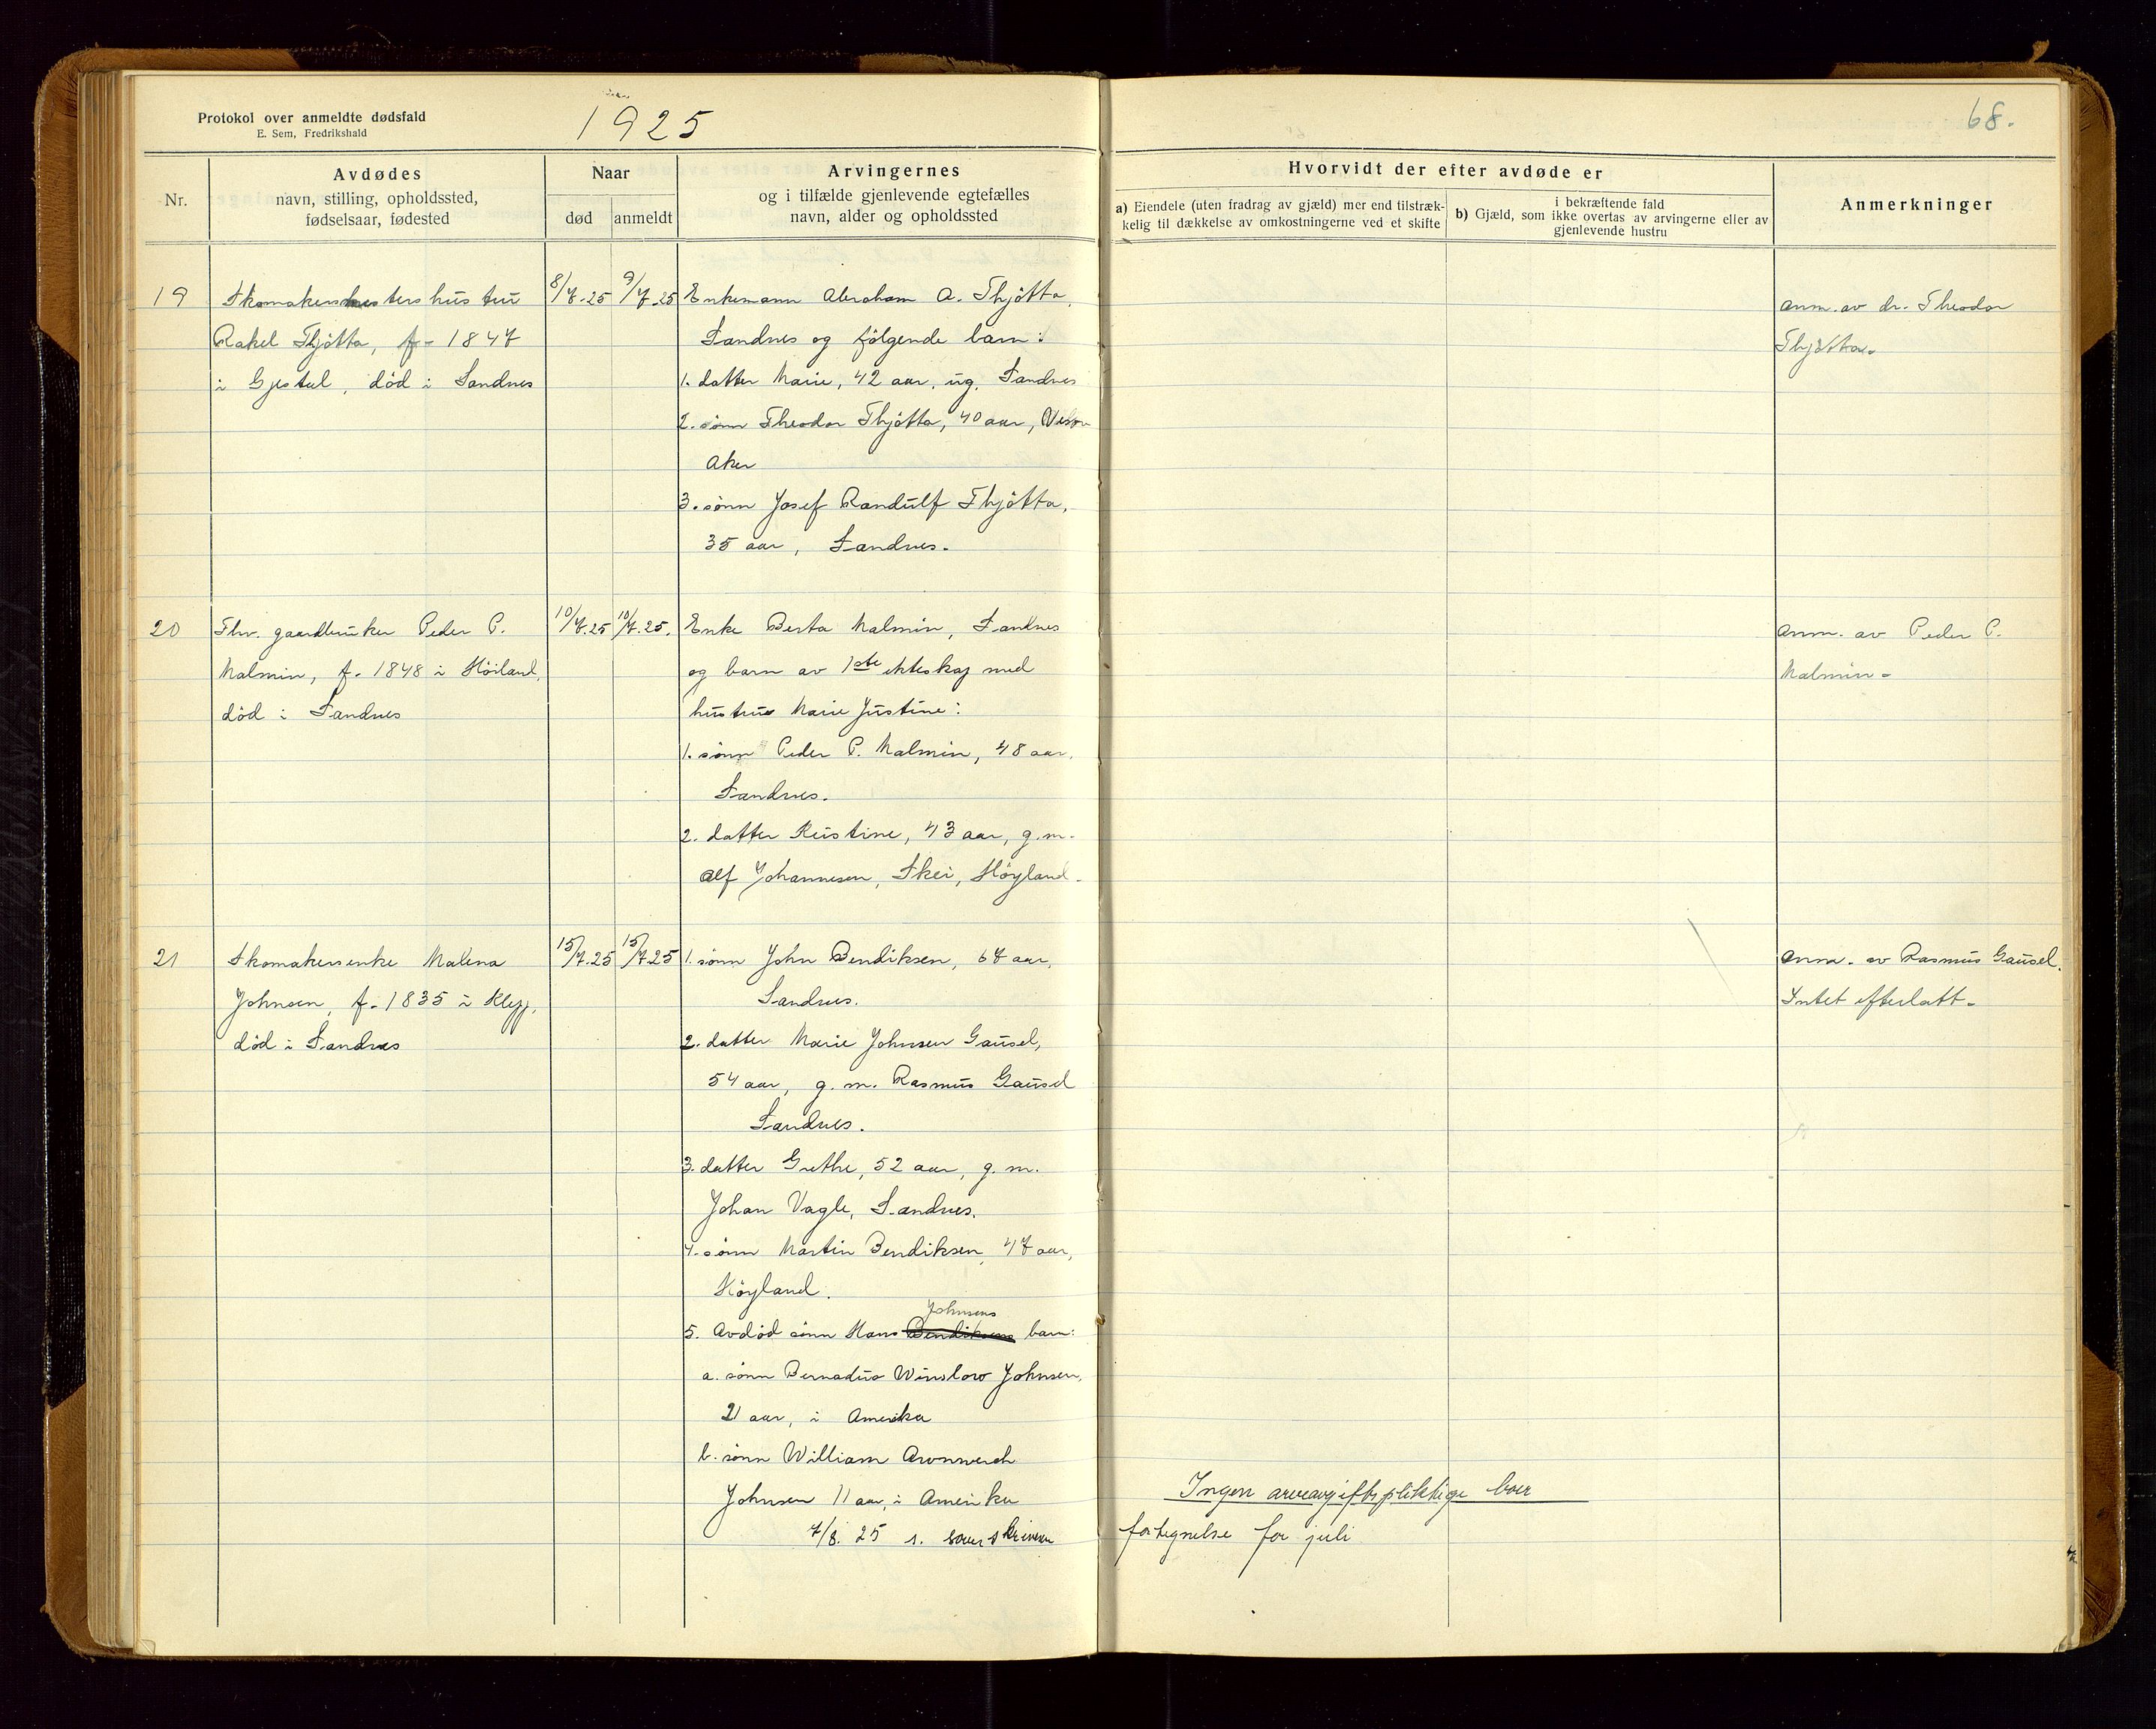 Protokol over anmeldte dødsfald
E. Sem, Fredrikshald
1925
68.
Nr.
Avdødes
navn, stilling, opholdssted,
fødselsaar, fødested
Naar
død
anmeldt
Arvingernes
og i tilfælde gjenlevende egtefælles
navn, alder og opholdssted
Hvorvidt der efter avdøde er
a) Eiendele (uten fradrag av gjæld) mer end tilstræk-
kelig til dækkelse av omkostningerne ved et skifte
i bekræftende fald
b) Gjæld, som ikke overtas av arvingerne eller av
gjenlevende hustru
Anmerkninger
19
Skomakermestershustru
Rakel Thjötta, f. 1847
i Gjestal, död i Sandnes
8/7-25
9/7-25
Enkemann Abraham A. Thjötta,
Sandnes og fölgende barn:
1. datter Marie, 42 aar, ug. Sandnes
2. sönn Theodor Thjötta, 40 aar,
Aker
3. sönn Josef Randulf Thjötta,
35 aar, Sandnes.
Anm. av dr. Theodor
Thjötta.
20
Fhv. gaardbruker Peder P.
Malmin, f. 1848 i Höiland,
död i Sandnes
10/7.25
10/7.25.
Enke Berta Malmin, Sandnes
og barn av 1ste ekteskap med
hustru Marie Justine:
1. sönn Peder P. Malmin, 48 aar,
Sandnes.
2. datter Kristine, 43 aar, g.m.
Alf Johannesen, Skei, Höyland.
Anm. av Peder P.
Malmin.
21
Skomakersenke Malena
Johnsen, f. 1835 i Klepp,
död i Sandnes
15/7.25
15/7.25
1. sönn John Bendiksen, 67 aar,
Sandnes.
2. datter Marie Johnsen Gausel,
54 aar, g.m. Rasmus Gausel
Sandnes.
3. datter Grethe, 52 aar, g.m.
Johan Vagle, Sandnes.
4. sönn Martin Bendiksen, 47 aar,
Höyland.
Johnsens
5. Avdöd sönn Hans Bendiksens barn:
a. sönn Bernadus Winslow Johnsen,
21 aar, i Amerika
b. sönn William
Johnsen 11 aar, i Amerika
7/8. 25 s. sorenskriveren
Anm. av Rasmus Gausel.
Intet efterlatt.
Ingen arveavgiftspliktige boer
fortegnelse for juli